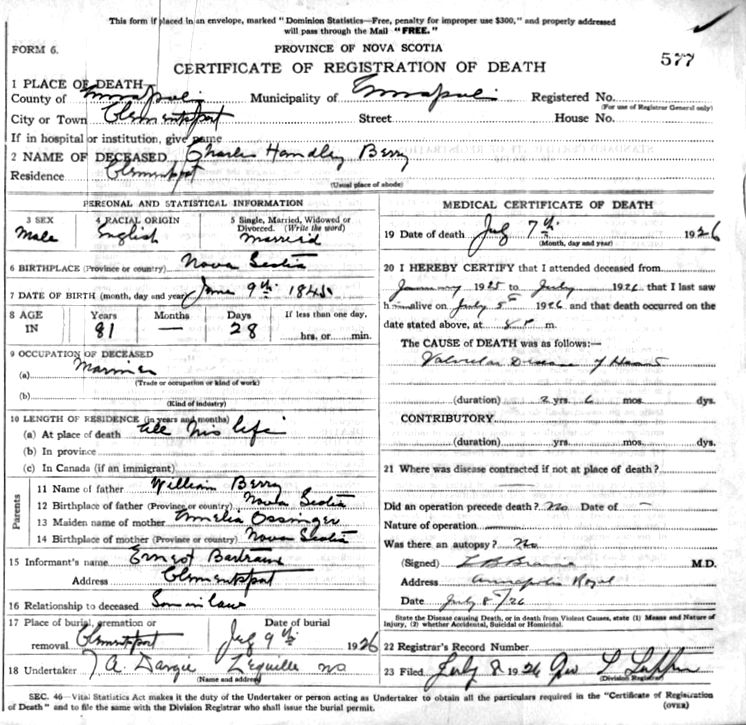 This form if placed in an envelope, marked "Dominion Statistics—Free, penalty for improper use $300," and properly addressed
will pass through the Mail "FREE."
FORM 6.
PROVINCE OF NOVA SCOTIA
577
CERTIFICATE OF REGISTRATION OF DEATH
1 PLACE OF DEATH—
County of Annapolis Municipality of Annapolis Registered No.
(For use of Registrar General only)
City or Town Clementsport Street House No.
If in hospital or institution, give name
2 NAME OF DECEASED Charles Handley Berry
Residence Clementsport
(Usual place of abode)
PERSONAL AND STATISTICAL INFORMATION
3 SEX 4 RACIAL ORIGIN 5 Single, Married, Widowed or
Divorced. (Write the word)
Male English Married
6 BIRTHPLACE (Province or country) Nova Scotia
7 DATE OF BIRTH (month, day and year) June 9th 1845
8 AGE Years Months Days If less than one day,
IN 81 — 28 hrs. or min.
9 OCCUPATION OF DECEASED
(a) Mariner
(Trade or occupation or kind of work)
(b)
(Kind of industry)
10 LENGTH OF RESIDENCE (in years and months)
(a) At place of death all his life
(b) In province
(c) In Canada (if an immigrant)
Parents
11 Name of father William Berry
12 Birthplace of father (Province or country) Nova Scotia
13 Maiden name of mother Amelia Ossinger
14 Birthplace of mother (Province or country) Nova Scotia
15 Informant's name Ernest Bertram
Address Clementsport
16 Relationship to deceased Son in law
17 Place of burial, cremation or Date of burial
removal Clementsport July 9th 1926
18 Undertaker A. Dargie Lequille NS
(Name and address)
MEDICAL CERTIFICATE OF DEATH
19 Date of death July 7th 1926
(Month, day and year)
20 I HEREBY CERTIFY that I attended deceased from
January 1925 to July 1926 that I last saw
him alive on July 5th 1926 and that death occurred on the
date stated above, at m.
The CAUSE of DEATH was as follows:—
Valvular Disease of Heart
(duration) 2 yrs. 6 mos. dys.
CONTRIBUTORY
(duration) yrs. mos. dys.
21 Where was disease contracted if not at place of death?
Did an operation precede death? no Date of —
Nature of operation —
Was there an autopsy? no
(Signed) M.D.
Address Annapolis Royal
Date July 8th/26
State the Disease causing Death, or in death from Violent Causes, state (1) Means and Nature of
Injury, (2) whether Accidental, Suicidal or Homicidal.
22 Registrar's Record Number
23 Filed July 8 1926 Geo L
(Division Registrar)
SEC. 46—Vital Statistics Act makes it the duty of the Undertaker or person acting as Undertaker to obtain all the particulars required in the "Certificate of Registration
of Death" and to file the same with the Division Registrar who shall issue the burial permit.
(OVER)